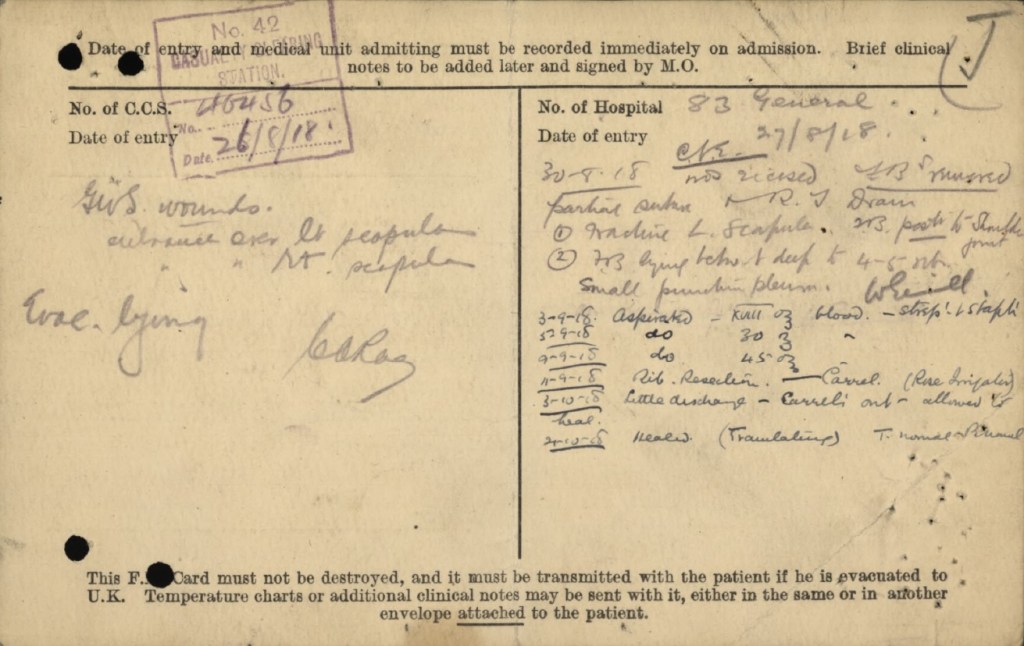 No. 42
CASUALTY CLEARING
STATION.
No. 46456
Date. 26/8/18.
Date of entry and medical unit admitting must be recorded immediately on admission. Brief clinical
notes to be added later and signed by M.O.
No. of C.C.S.
Date of entry
GWS. wounds.
entrance over lt scapula
" " Rt. scapula
Evac. lying
No. of Hospital 83 General.
Date of entry 27/8/18.
30-8-18 excised FB removed
partial suture Drain
① L. Scapula. FB post to Shoulder
joint
② FB lying deep to 4-5
Small
3-9-18. Aspirated - oz blood. -
5-9-18 do 30 oz "
9-9-18 do 45 oz
11-9-18 Rib. Resection. — Carrel. (Rose Irrigation)
3-10-18 Little discharge - Carrel's out - allowed to
heal.
Healed. T. normal
This F. Card must not be destroyed, and it must be transmitted with the patient if he is evacuated to
U.K. Temperature charts or additional clinical notes may be sent with it, either in the same or in another
envelope attached to the patient.